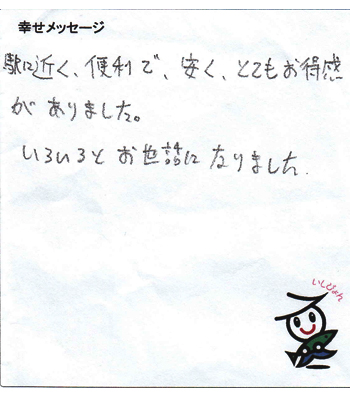 幸せメッセージ
駅に近く、便利で、安く、とてもお得感
がありました。
いろいろとお世話になりました.
いしぴょん